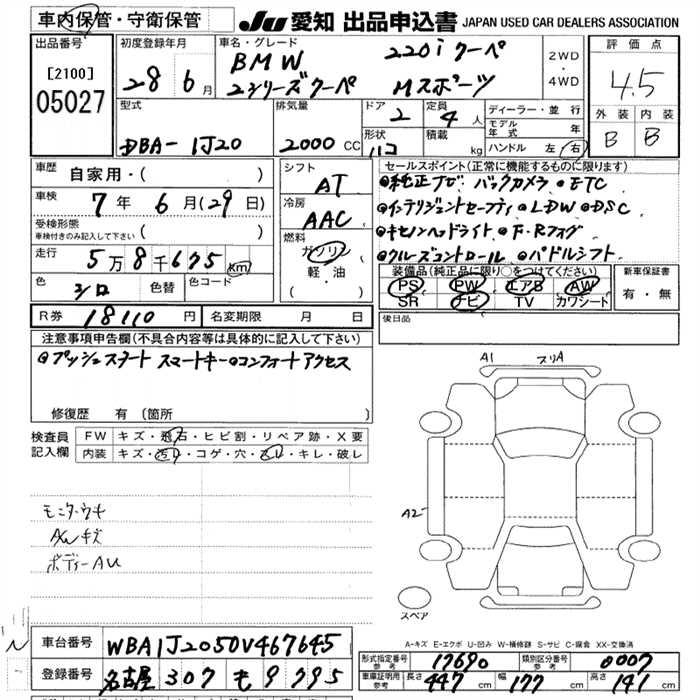 車内保管・守衛保管
JU 愛知 出品申込書 JAPAN USED CAR DEALERS ASSOCIATION
出品番号
[2100]
05027
初度登録年月
28 6月
車名・グレード
BMW 220i クーペ
2シリーズクーペ Mスポーツ
2WD
・
4WD
評価点
4.5
外装 内装
B B
型式
DBA-1J20
排気量
2000 CC
ドア
2
定員
4人
形状
ハコ
積載
kg
ディーラー・並行
モデル年式 年
ハンドル 左・右
車歴
自家用・( )
車検
7年 6月(29日)
受検形態
車検付きのみ記入して下さい ( )
走行
5万8千675 km
色
シロ
色替
色コード
シフト
AT
冷房
AAC
燃料
ガソリン
軽・油
セールスポイント(正常に機能するものに限ります)
●純正ナビ バックカメラ ●ETC
●インテリジェントセーフティ ●LDW ●DSC
●キセノンヘッドライト ●F・Rフォグ
●クルーズコントロール ●パドルシフト
装備品(純正品に限り○をつけてください)
PS PW エアB AW
SR ナビ TV カワシート
新車保証書
有・無
R券 18110円
名変期限 月 日
後日品
注意事項申告欄(不具合内容等は具体的に記入して下さい)
●プッシュスタート スマートキー ●コンフォートアクセス
修復歴 有 (箇所
検査員記入欄
FW キズ・飛石・ヒビ割・リペア跡・X要
内装 キズ・汚れ・コゲ・穴・スレ・キレ・破レ
モニターウキ
AWキズ
ボディーAU
A1 スリA
A2
スペア
A-キズ E-エクボ U-凹み W-補修跡 S-サビ C-腐食 XX-交換済
車台番号 WBA1J2050V467645
登録番号 名古屋 307 も 9795
形式指定番号 参考 17690
類別区分番号 参考 0007
車庫証明用 参考 長さ 447cm 幅 177cm 高さ 141cm